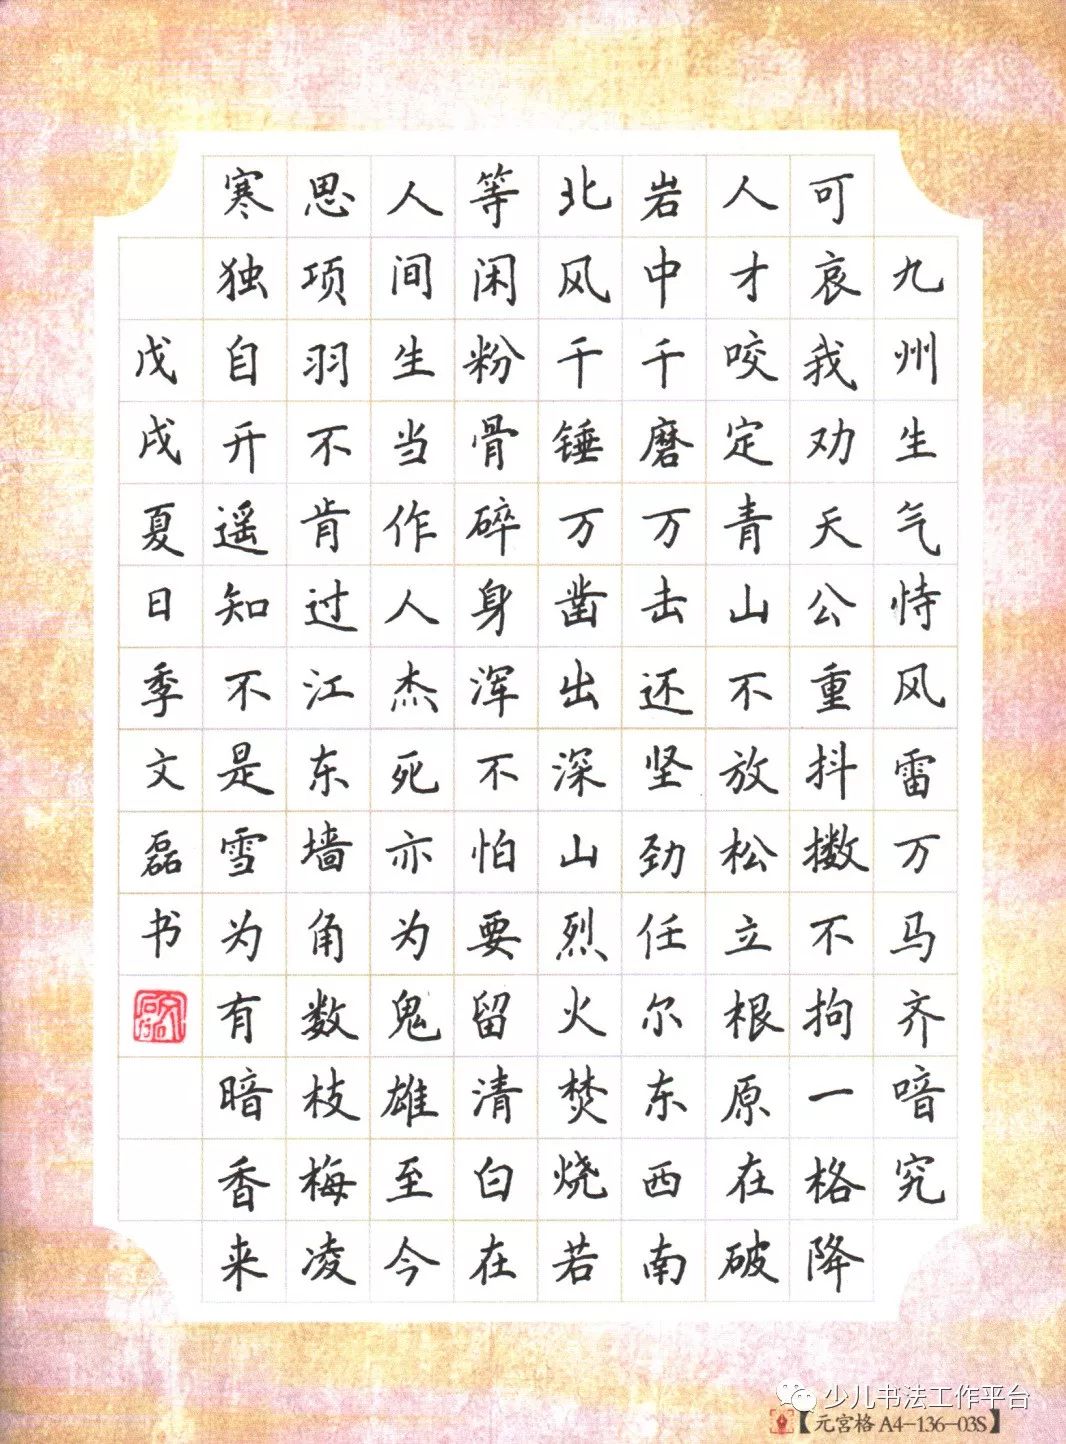 九州生气恃风雷万马齐喑究
可哀我劝天公重抖擞不拘一格降
人才咬定青山不放松立根原在破
岩中千磨万击还坚劲任尔东西南
北风千锤万凿出深山烈火焚烧若
等闲粉骨碎身浑不怕要留清白在
人间生当作人杰死亦为鬼雄至今
思项羽不肯过江东墙角数枝梅凌
寒独自开遥知不是雪为有暗香来
戊戌夏日季文磊书
少儿书法工作平台
【元宫格 A4-136-03S】